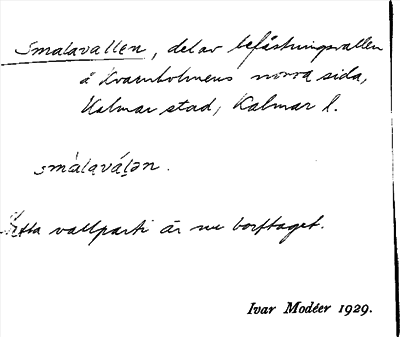 Smalavallen, del av befästningsvallen
å Kvarnholmens norra sida,
Kalmar stad, Kalmar l.
smàlaválən.
Detta vallparti är nu borttaget.
Ivar Modéer 1929.